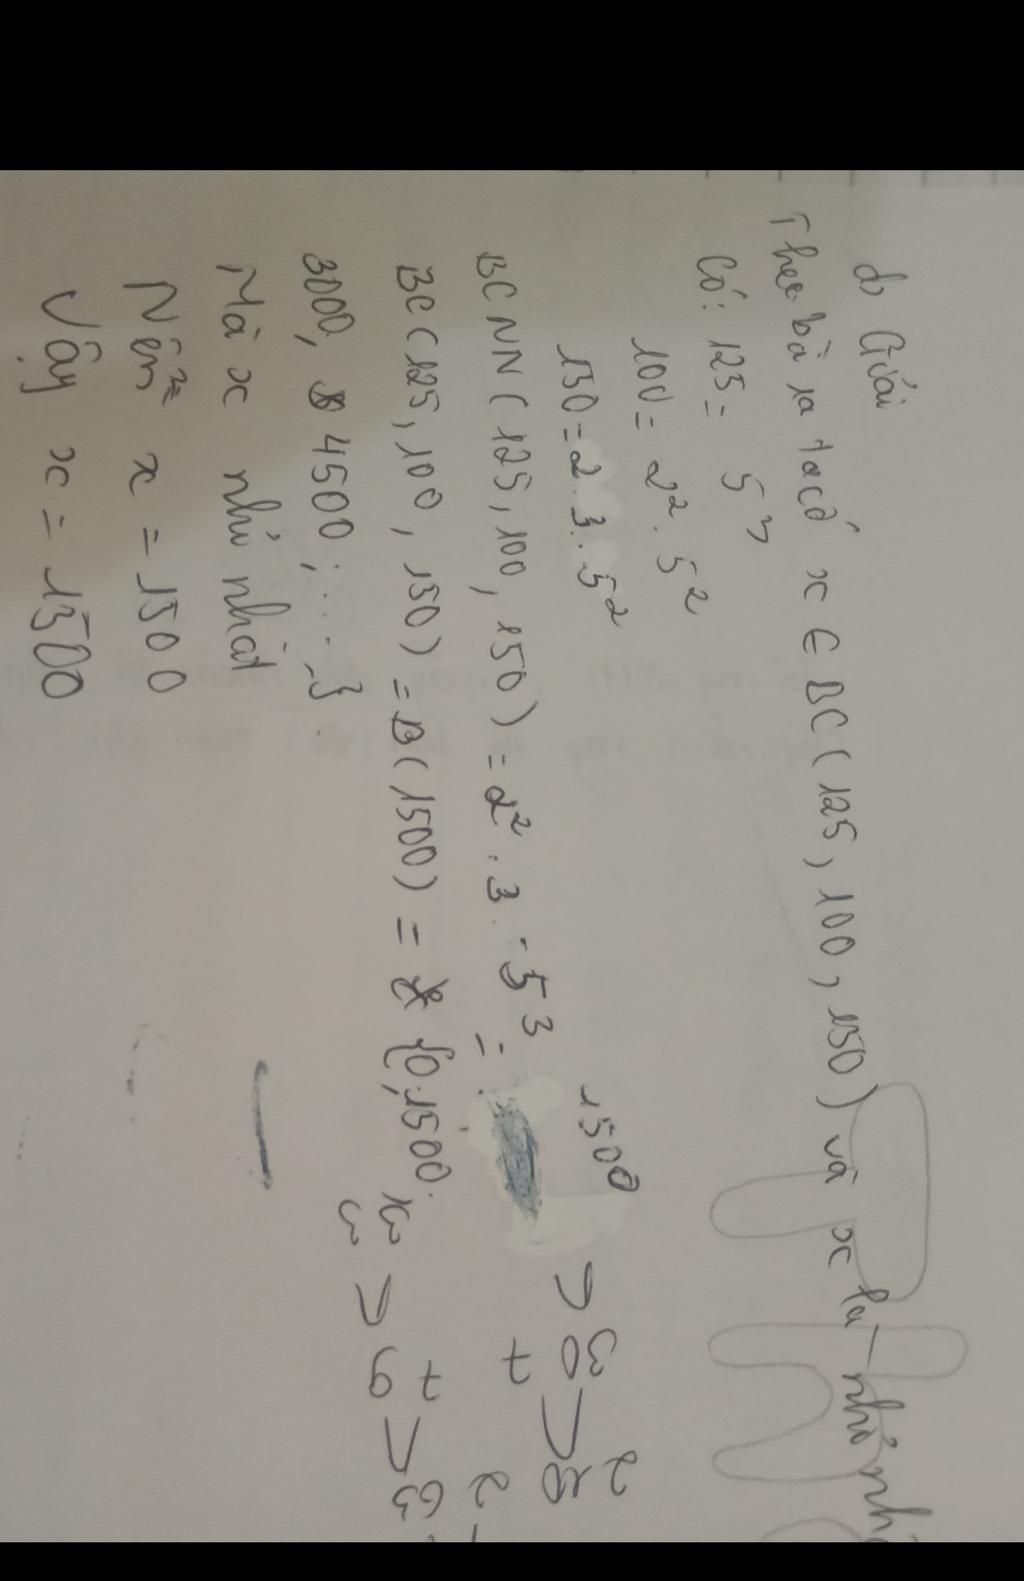 d, Giải
Theo bài ra ta có x ∈ BC(125, 100, 150) và x là nhỏ
Có: 125 = 5³
100 = 2² . 5²
150 = 2 . 3 . 5²
BCNN(125, 100, 150) = 2² . 3 . 5³ = 1500
BC(125, 100, 150) = B(1500) = {0, 1500.
3000, 4500; ...}
Mà x nhỏ nhất
Nên x = 1500
Vậy x = 1500